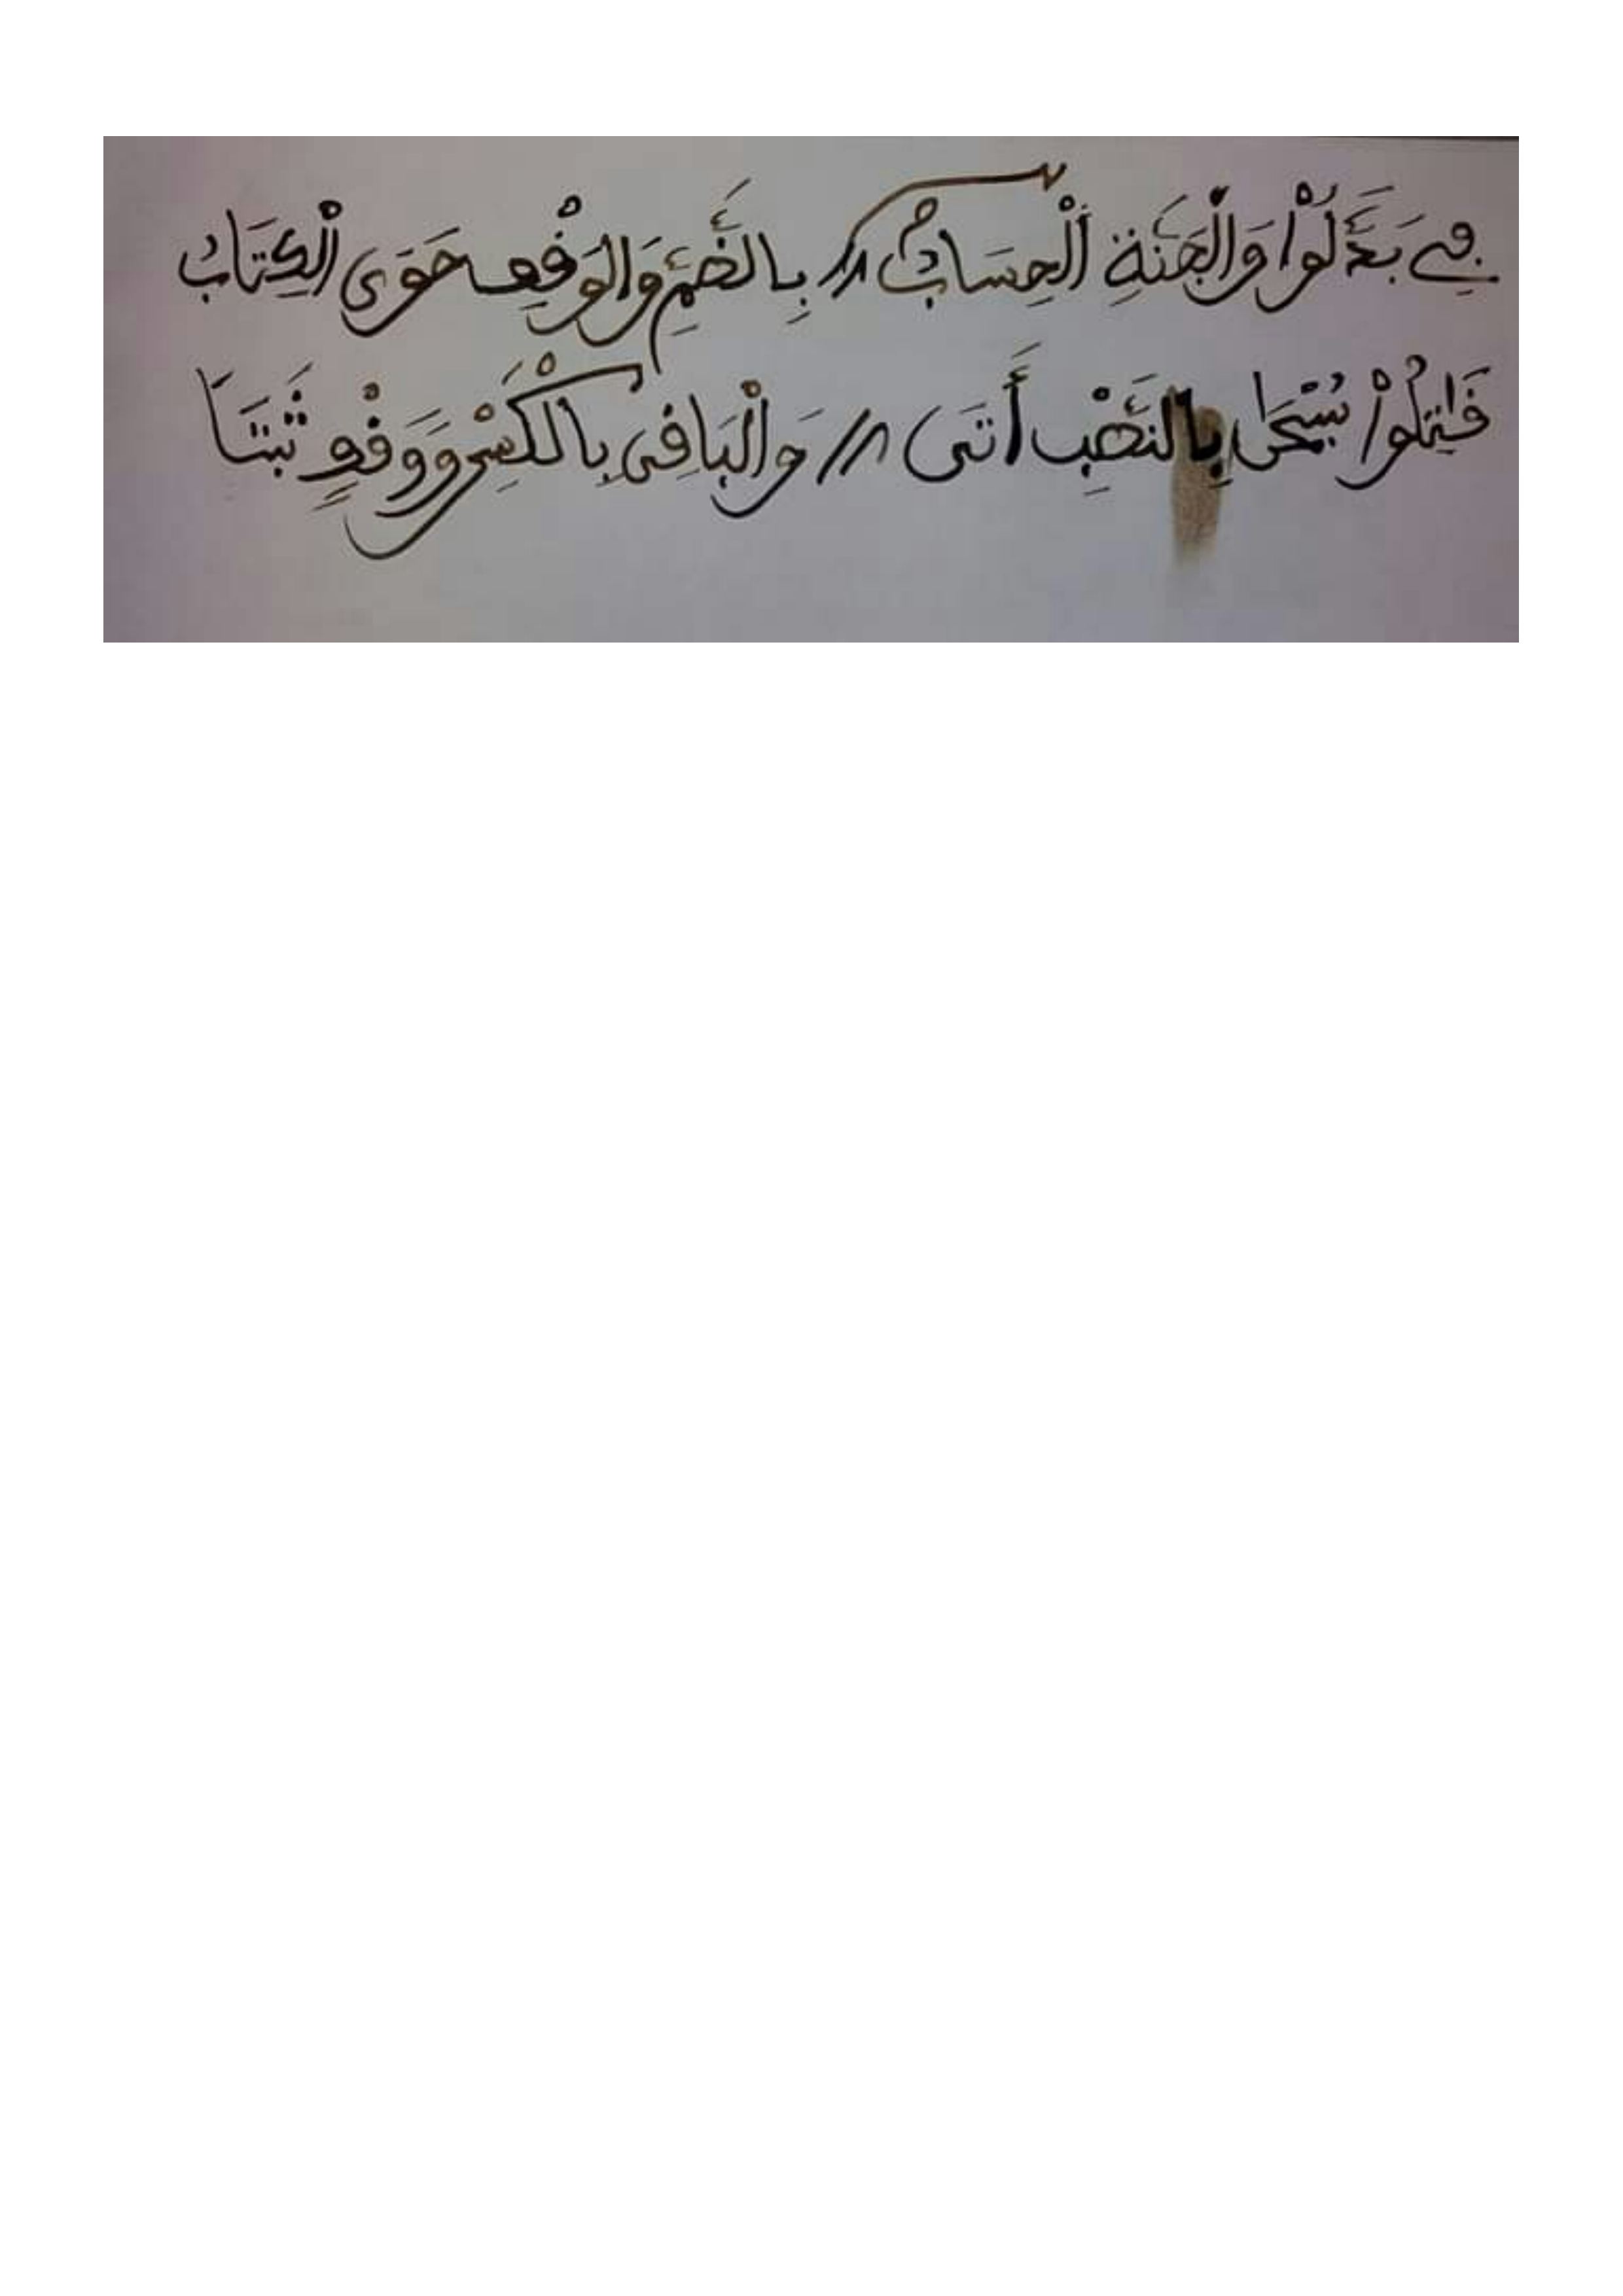 فِے بَدَّلُواْ وَالْجَنَّةِ الْحِسَابُ // بِالضَّمِّ وَالوَقْفِ حَوَى الْكِتَابُ
قَاتِلُواْ سُبْحَانَ بِالنَّصْبِ أَتَى // وَالْبَاقِى بِالْكَسْرِ وَوَقْفٍ ثَبَتَا